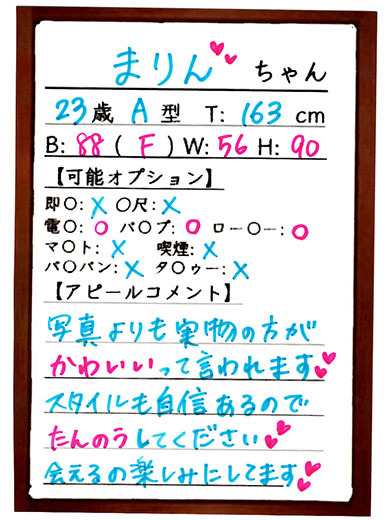 まりん♥♥ ちゃん
23歳 A型 T: 163 cm
B: 88 ( F ) W: 56 H: 90
【可能オプション】
即〇: × 〇尺: ×
電〇: ○ バ〇ブ: ○ ロー〇ー: ○
マ〇ト: × 喫煙: ×
パ〇パン: × タ〇ゥー: ×
【アピールコメント】
写真よりも実物の方が
かわいいって言われます♥♥
スタイルも自信あるので
たんのうしてください♥♥
会えるの楽しみにしてます♥♥